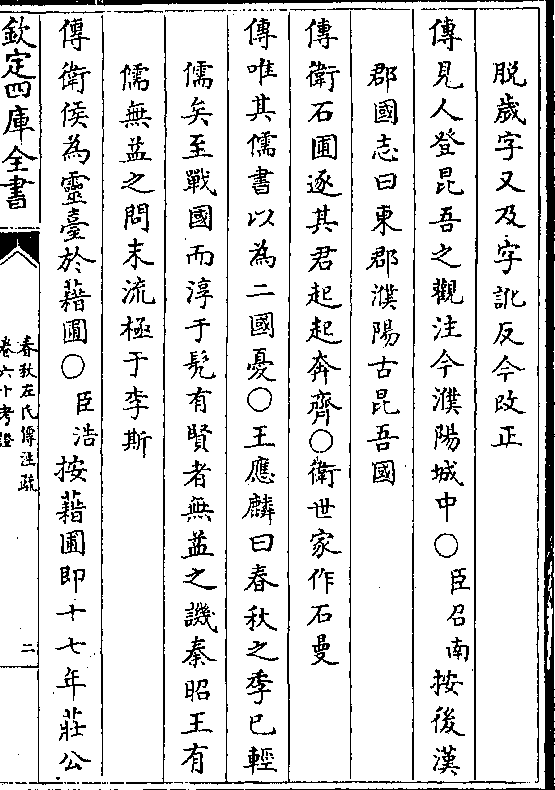 脱歲字又及字訛反今改正
傳見人登昆吾之觀注今濮陽城中○臣召南按後漢
郡國志曰東郡濮陽古昆吾國
傳衛石圃逐其君起起奔齊○衛世家作石曼
傳唯其儒書以為二國憂○王應麟曰春秋之季已輕
儒矣至戰國而淳于髠有賢者無益之譏秦昭王有
儒無益之問末流極于李斯
傳衛侯為靈臺於藉圃○臣浩按藉圃即十七年莊公
欽定四庫全書
春秋左氏傳注疏
卷六十考證
二